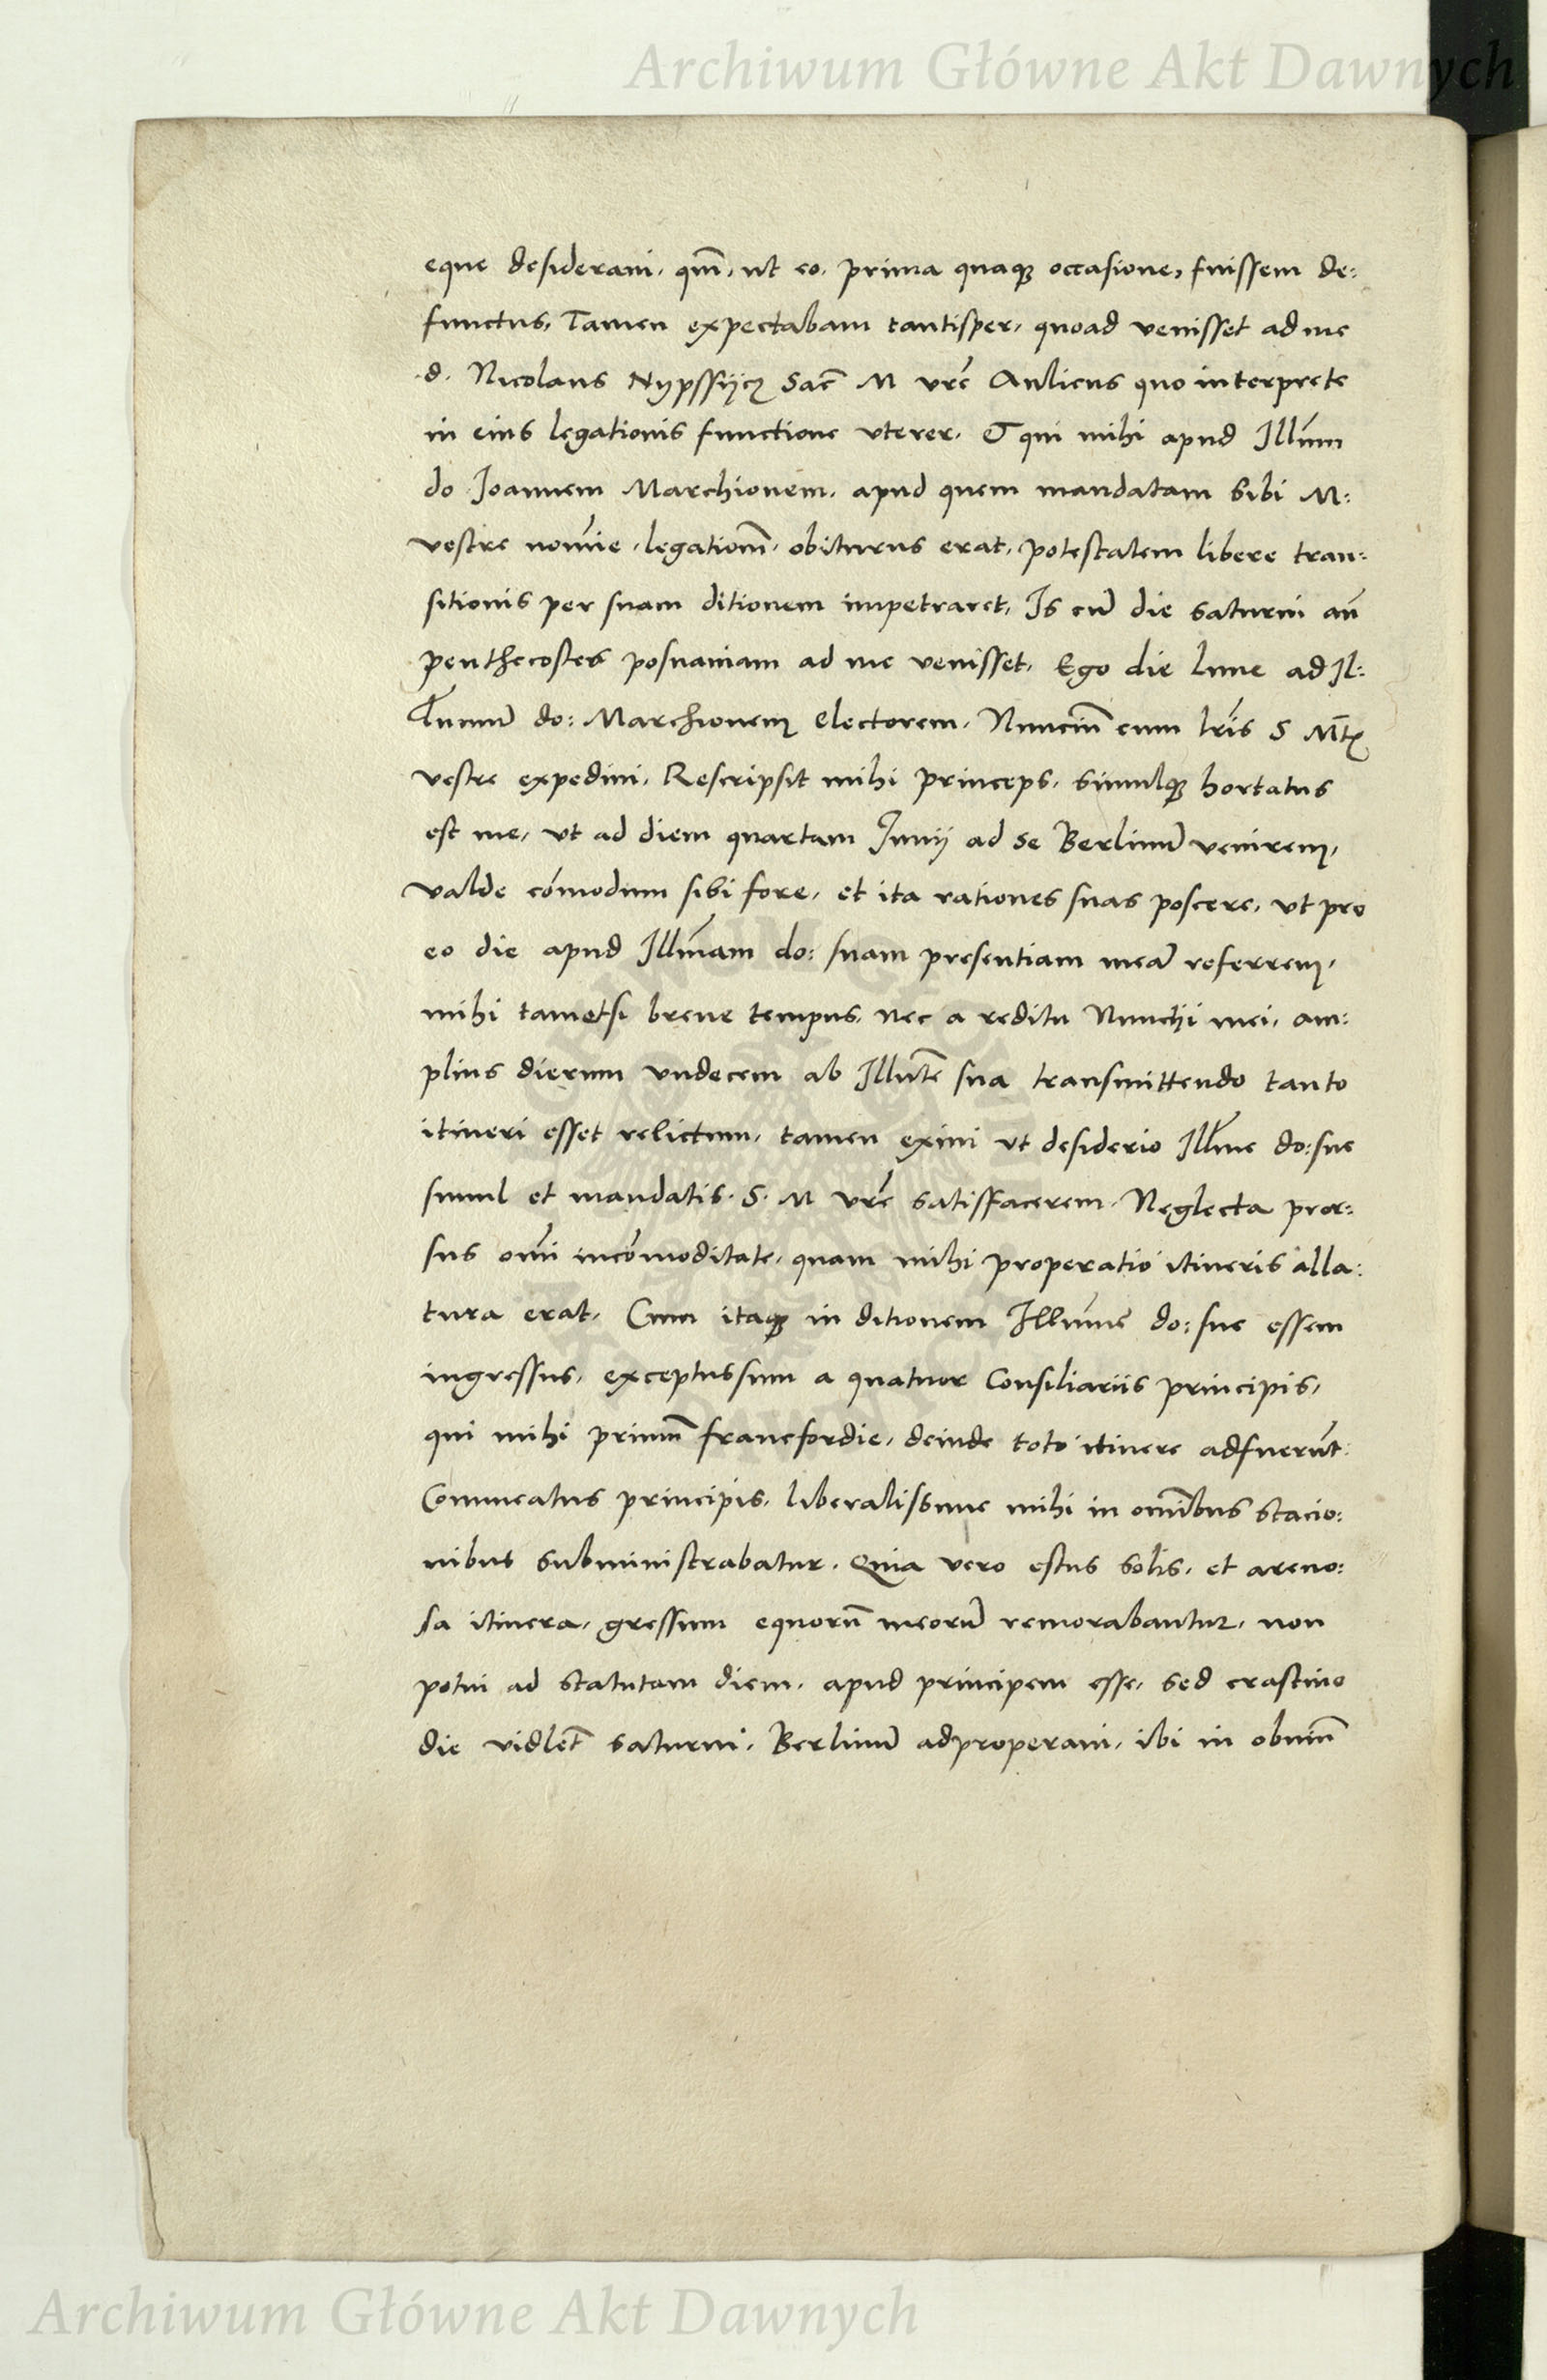 Archiwum Główne Akt Dawnych
eque desideraui, qm̃, ut eo, prima quaqꝫ occasione, fuissem de:
functus, Tamen expectabam tantisper, quoad venisset ad me
d. Nicolaus Nypssijcz Sac̃ M vrẽ Aulicus quo interprete
in eius legationis functione vterer, Et qui mihi apud Illũm
do Joannem Marchionem, apud quem mandatam sibi M:
vestre nomĩe legationẽ, obiturus erat, potestatem libere tran:
sitionis per suam ditionem impetraret, Is cũ die saturni añ
penthecostes posnaniam ad me venisset, Ego die lune ad Il:
lũmũ do: Marchionem Electorem, Nunciũ cum lr̃is S Mtꝭ
vestre expediui, Rescripsit mihi princeps, simulqꝫ hortatus
est me, vt ad diem quartam Junij ad se Berlinũ venirem,
valde cõmodum sibi fore, et ita rationes suas poscere, ut pro
eo die apud Illm̃am do: suam presentiam meã referrem,
mihi tametsi breue tempus, nec a reditu Nunchi mei, am:
plius dierum vndecem ab Illutẽ sua transmittendo tanto
itineri esset relictum, tamen exiui vt desiderio Illm̃e do: sue
simul et mandatis S. M vrẽ satisfacerem, Neglecta pror:
sus omĩ incõmoditate, quam mihi properatio itineris alla:
tura erat, Cum itaqꝫ in ditionem Illũme do: sue essem
ingressus, exceptus sum a quatuor Consiliariis principis,
qui mihi primũ francfordie, deinde toto itinere adfuerũt:
Commeatus principis, liberalissime mihi in omĩbus stacio:
nibus subministrabatur, Quia vero estus solis, et areno:
sa itinera, gressum equorũ meorũ remorabantur, non
potui ad statutam diem, apud principem esse, sed crastino
die vidlet̃ saturni, Berlinũ adproperaui, ibi in obuiũ
Archiwum Główne Akt Dawnych